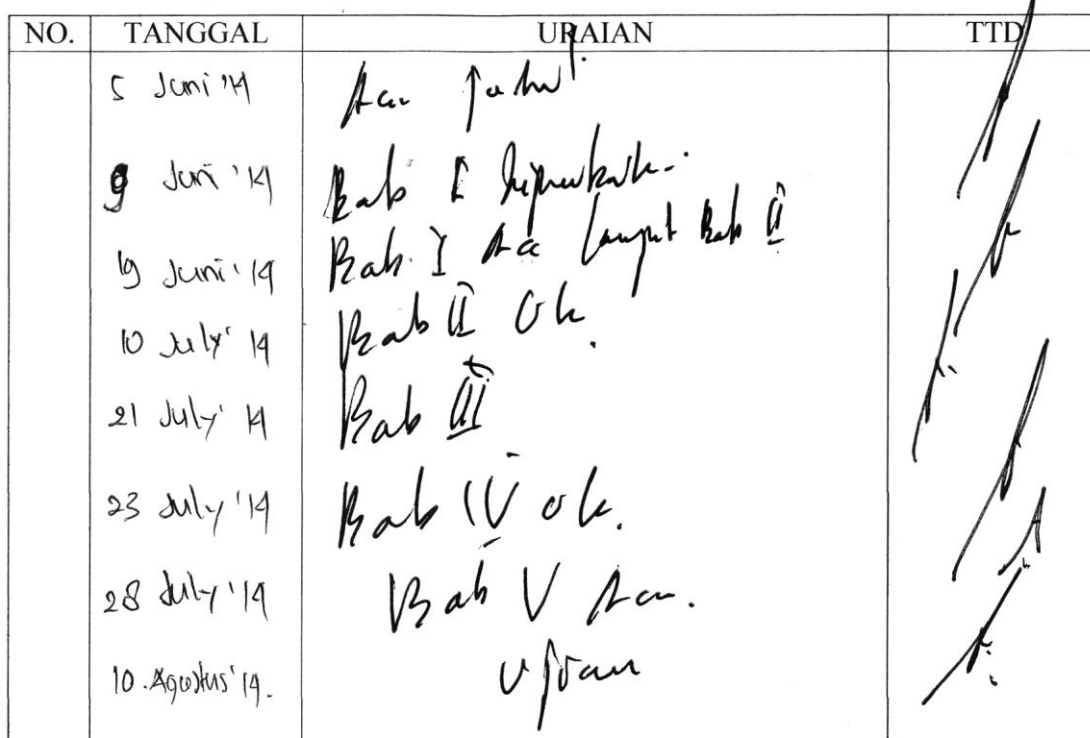 NO. TANGGAL URAIAN TTD
5 Juni '14 Acc
9 Juni '14 Bab I diperbaiki.
19 Juni '14 Bab I Acc lanjut Bab II
10 July' 14 Bab II Ok.
21 July' 14 Bab III
23 July '14 Bab IV ok.
28 July '14 Bab V Acc.
10. Agustus '14. Ujian